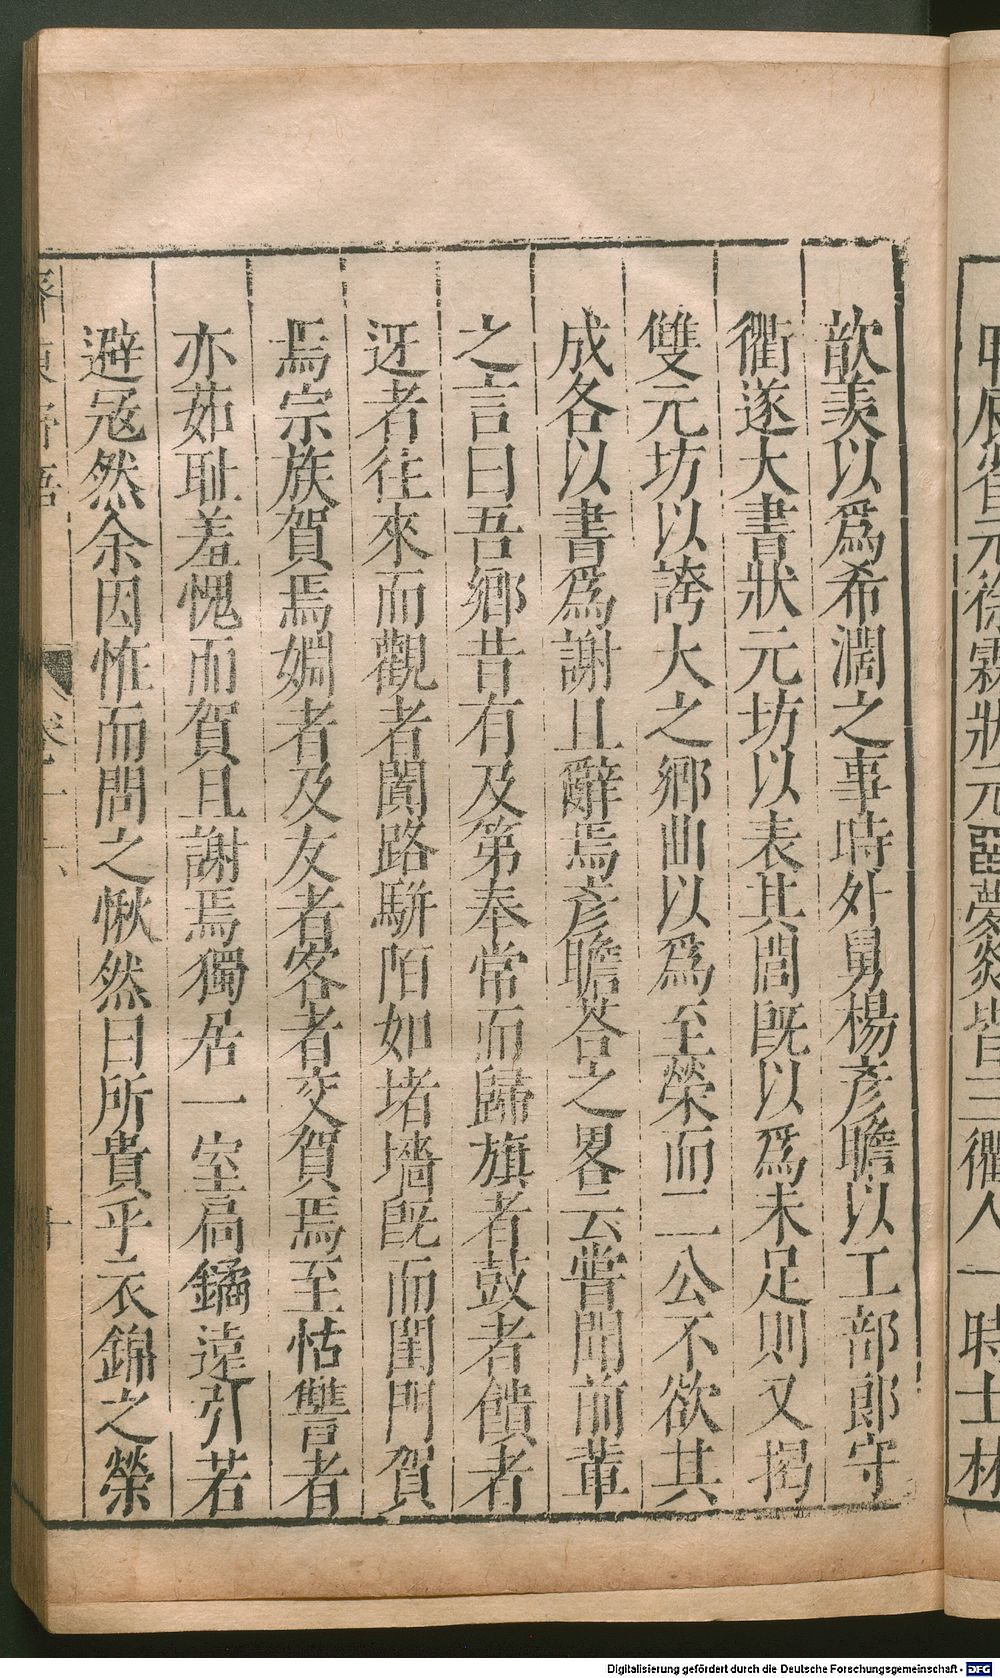 甲辰省元徐霖狀元留夢炎皆三衢人一時士林
歆羨以爲希濶之事時外舅楊彥瞻以工部郎守
衢遂大書狀元坊以表其閭旣以爲未足則又揭
雙元坊以誇大之鄉曲以爲至榮而二公不欲其
成各以書爲謝且辭焉彥瞻荅之畧云嘗聞前輩
之言曰吾鄉昔有及第奉常而歸旗者鼓者饋者
迓者往來而觀者闐路駢陌如堵墻旣而閨門賀
焉宗族賀焉姻者及友者客者交賀焉至怙讐者
亦茹耻羞愧而賀且謝焉獨居一室扃鐍遠引若
避冦然余因怪而問之愀然曰所貴乎衣錦之榮
齊東野語 卷十六
Digitalisierung gefördert durch die Deutsche Forschungsgemeinschaft - DFG